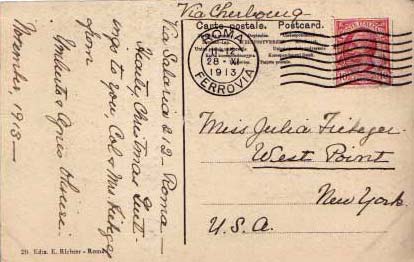 Via Cherbourg
Carte postale. Postcard.
ROMA
11-12
28·XI
1913
FERROVIA
Via Salaria 212 - Roma -
Hearty Christmas Greet-
ings to you, Col & Mrs Fiebeger
from
Umberto & Agnes Olivieri.
November, 1913 -
Miss Julia Fiebeger
West Point
New York
U.S.A.
29 Ediz. E. Richter - Roma